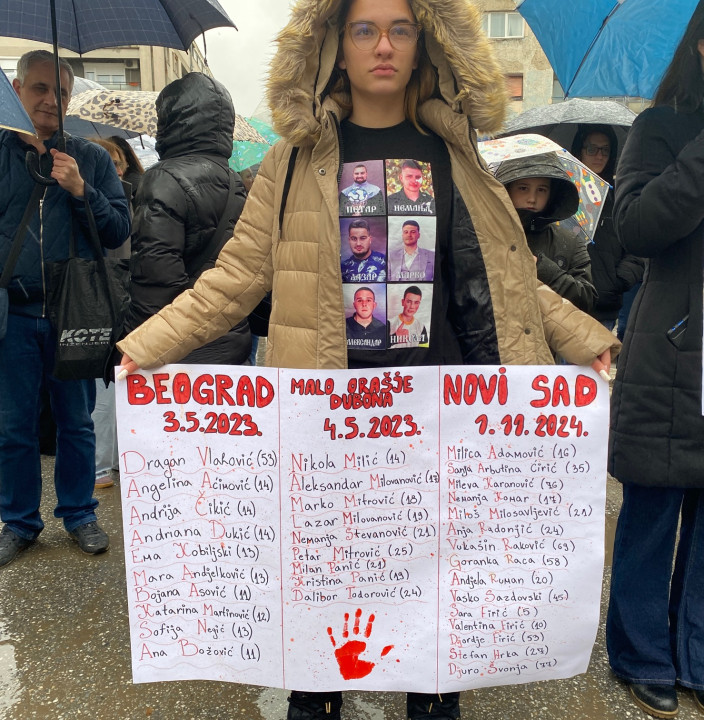 ПЕТАР
НЕМАЊА
ЛАЗАР
МАРКО
АЛЕКСАНДАР
KOTE
BEOGRAD
3.5.2023.
Dragan Vlahović (53)
Angelina Aćimović (14)
Andrija Čikić (14)
Andriana Dukić (14)
Ema Kobiljski (13)
Mara Andjelković (13)
Bojana Asović (11)
Katarina Martinović (12)
Sofija Negić (13)
Ana Božović (11)
MALO ORAŠJE
DUBONA
4.5.2023.
Nikola Milić (14)
Aleksandar Milovanović (17)
Marko Mitrović (18)
Lazar Milovanović (19)
Nemanja Stevanović (21)
Petar Mitrović (25)
Milan Panić (21)
Kristina Panić (19)
Dalibor Todorović (24)
NOVI SAD
1.11.2024.
Milica Adamović (16)
Sanja Arbutina Ćirić (35)
Mileva Karanović (76)
Nemanja Komar (17)
Miloš Milosavljević (21)
Anja Radonjić (24)
Vukašin Raković (69)
Goranka Raca (58)
Andjela Ruman (20)
Vasko Sazdovski (45)
Sara Firić (5)
Valentina Firić (10)
Djordje Firić (53)
Stefan Hrka (27)
Djuro Švonja (77)